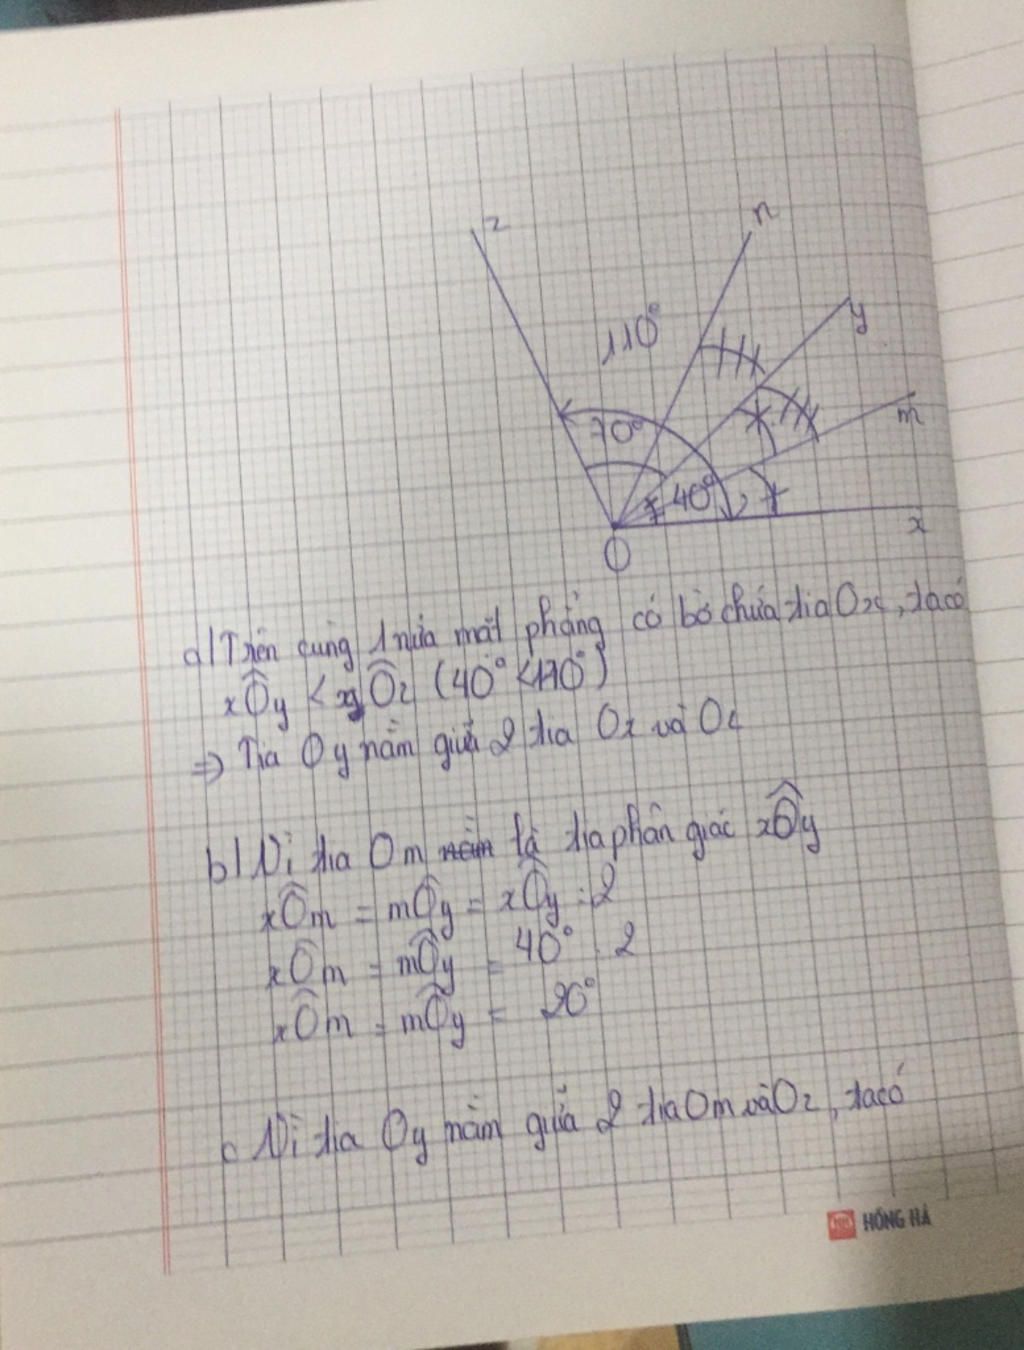 z
n
110°
y
m
70°
40°
x
O
a/ Trên cùng 1 nửa mặt phẳng có bờ chứa tia Ox, ta có
xÔy < xÔz (40° < 110°)
=> Tia Oy nằm giữa 2 tia Ox và Oz
b/ Vì tia Om là tia phân giác xÔy
xÔm = mÔy = xÔy : 2
xÔm = mÔy = 40° : 2
xÔm = mÔy = 20°
c Vì tia Oy nằm giữa 2 tia Om và Oz, ta có
HỒNG HÀ